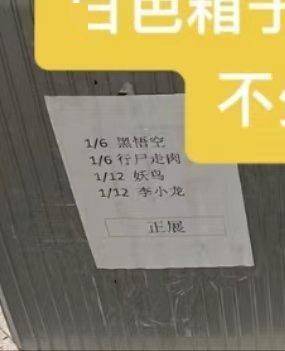 白色箱子
不
1/6 黑悟空
1/6 行尸走肉
1/12 妖鸟
1/12 李小龙
正展